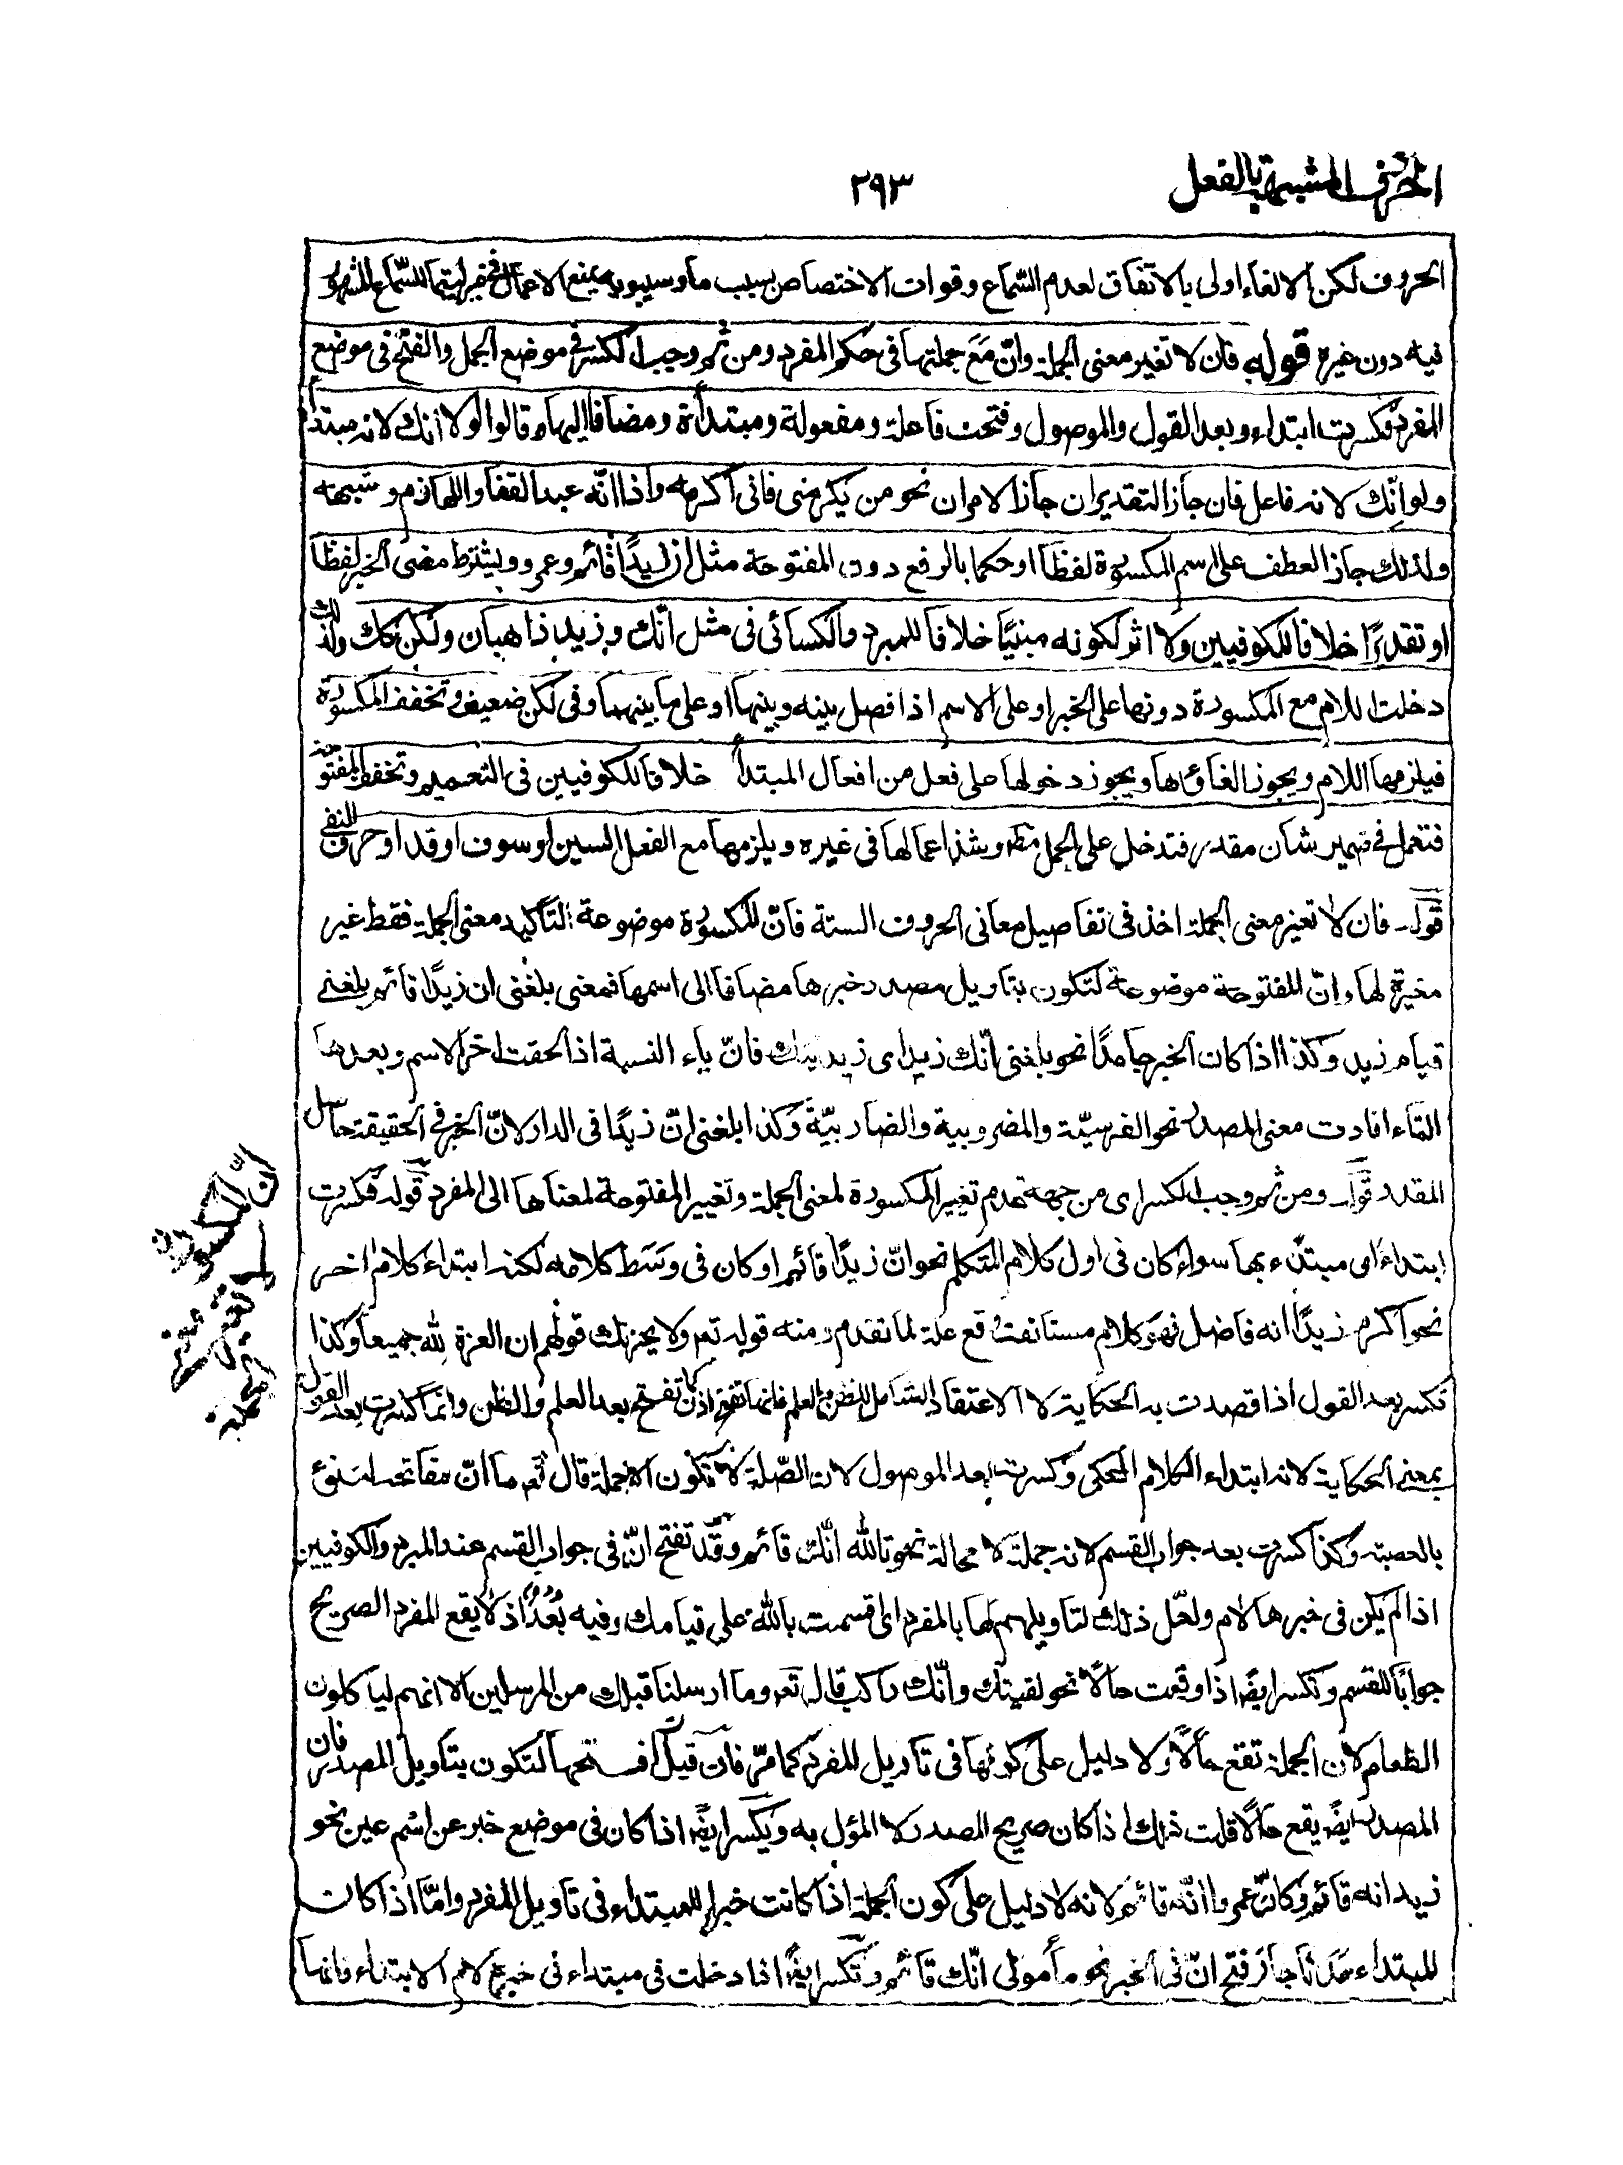 الحروف المشبهة بالفعل
٢٩٣
الحروف لكن الالغاء اولى بالاتفاق لعدم السّماع وفوات الاختصاص بسبب ما وسيبويه يمنع الاعمال في غير ليتما للسّماع المشهور
فيه دون غيره قوله فان لا تغير معنى الجملة وانّ مَعَ جملتها فى حكم المفرد ومن ثم وجب الكسر فى موضع الجمل والفتح فى موضع
المفرد فكسرت ابتداء وبعد القول والموصول وفتحت فاعلة ومفعولة ومبتدأة ومضافا اليها وقالوا لولا انك لانه مبتدأ
ولو انّك لانه فاعل فان جاز التقديران جاز الامران نحو من يكرمنى فانى اكرمه واذا انّه عبد القفا واللهازم وشبهه
ولذلك جاز العطف على اسم المكسورة لفظًا او حكما بالرفع دون المفتوحة مثل ان زيدًا قائم وعمرو ويشترط مضى الخبر لفظًا
او تقديرًا خلافا للكوفيين ولا اثر لكونه مبنيًا خلافا للمبرد والكسائى فى مثل انّك وزيد ذاهبان ولكن كذلك ولذلك
دخلت اللام مع المكسورة دونها على الخبر او على الاسم اذا فصل بينه وبينها او على ما بينهما وفى لكن ضعيف وتخفف المكسورة
فيلزمها اللام ويجوز الغاؤها ويجوز دخولها على فعل من افعال المبتدأ خلافا للكوفيين فى التعميم وتخفف المفتوحة
فتعمل فى ضمير شان مقدر فتدخل على الجمل مطّ وشذ اعمالها فى غيره ويلزمها مع الفعل السين او سوف او قد او حرف النفى
قوله فان لا تغير معنى الجملة اخذ فى تفاصيل معانى الحروف الستة فانّ المكسورة موضوعة لتاكيد معنى الجملة فقط غير
مغيرة لها وانّ المفتوحة موضوعة لتكون بتاويل مصدر خبرها مضافا الى اسمها فمعنى بلغنى ان زيدًا قائم بلغنى
قيام زيد وكذا اذا كان الخبر جامدًا نحو بلغنى انّك زيد اى زيديتك فانّ ياء النسبة اذا لحقت اخر الاسم وبعدها
التاء افادت معنى المصدر نحو الفرسيّة والمضروبية والضاربيّة وكذا بلغنى انّ زيدًا فى الدار لانّ الخبر فى الحقيقة حاصل
المقدر قوله ومن ثم وجب الكسر اى من جهة عدم تغيير المكسورة لمعنى الجملة وتغيير المفتوحة لمعناها الى المفرد قوله فكسرت
ابتداءً اى مبتدء بها سواء كان فى اول كلام المتكلم نحو انّ زيدًا قائم او كان فى وسَط كلامه لكنه ابتداء كلام اخر
نحو اكرم زيدًا انه فاضل فهو كلام مستانف وقع علة لما تقدم ومنه قوله تع ولا يحزنك قولهم ان العزة لله جميعا وكذا
تكسر بعد القول اذا قصدت به الحكاية لا الاعتقاد الشامل للظن والعلم فانها تفتح اذن كما تفتح بعد العلم والظن وانما كسرت بعد القول
بمعنى الحكاية لانه ابتداء الكلام المحكى وكسرت بعد الموصول لان الصّلة لا تكون الا جملة قال تع ما انّ مفاتحه لتنوء
بالعصبة وكذا كسرت بعد جواب القسم لانه جملة لا محالة نحو تالله انّك قائم وقد تفتح انّ فى جواب القسم عند المبرد والكوفيين
اذا لم يكن فى خبرها لام ولعلّ ذلك لتاويلهم لها بالمفرد اى اقسمت بالله على قيامك وفيه بُعْدٌ اذ لا يقع المفرد الصريح
جوابًا للقسم وتكسر ايضًا اذا وقعت حالًا نحو لقيتك وانّك راكب قال تع وما ارسلنا قبلك من المرسلين الا انهم لياكلون
الطعام لان الجملة تقع حالًا ولا دليل على كونها فى تاويل المفرد كما مرّ فان قيل افتحها لتكون بتاويل المصدر فان
المصدر ايضًا يقع حالًا قلت ذلك اذا كان صريح المصدر لا المؤل به ويكسر ايضًا اذا كان فى موضع خبر عن اسم عين نحو
زيد انه قائم وكانّ عمروا انّه قائم لانه لا دليل على كون الجملة اذا كانت خبرا للمبتداء فى تاويل المفرد وامّا اذا كان
المبتداء حدثًا جاز فتح انّ فى الخبر نحو مأمولى انّك قائم وتكسر ايضًا اذا دخلت فى مبتداء فى خبره لام الابتداء فانها
انّ المكسورة
لا تغير معنى
الجملة